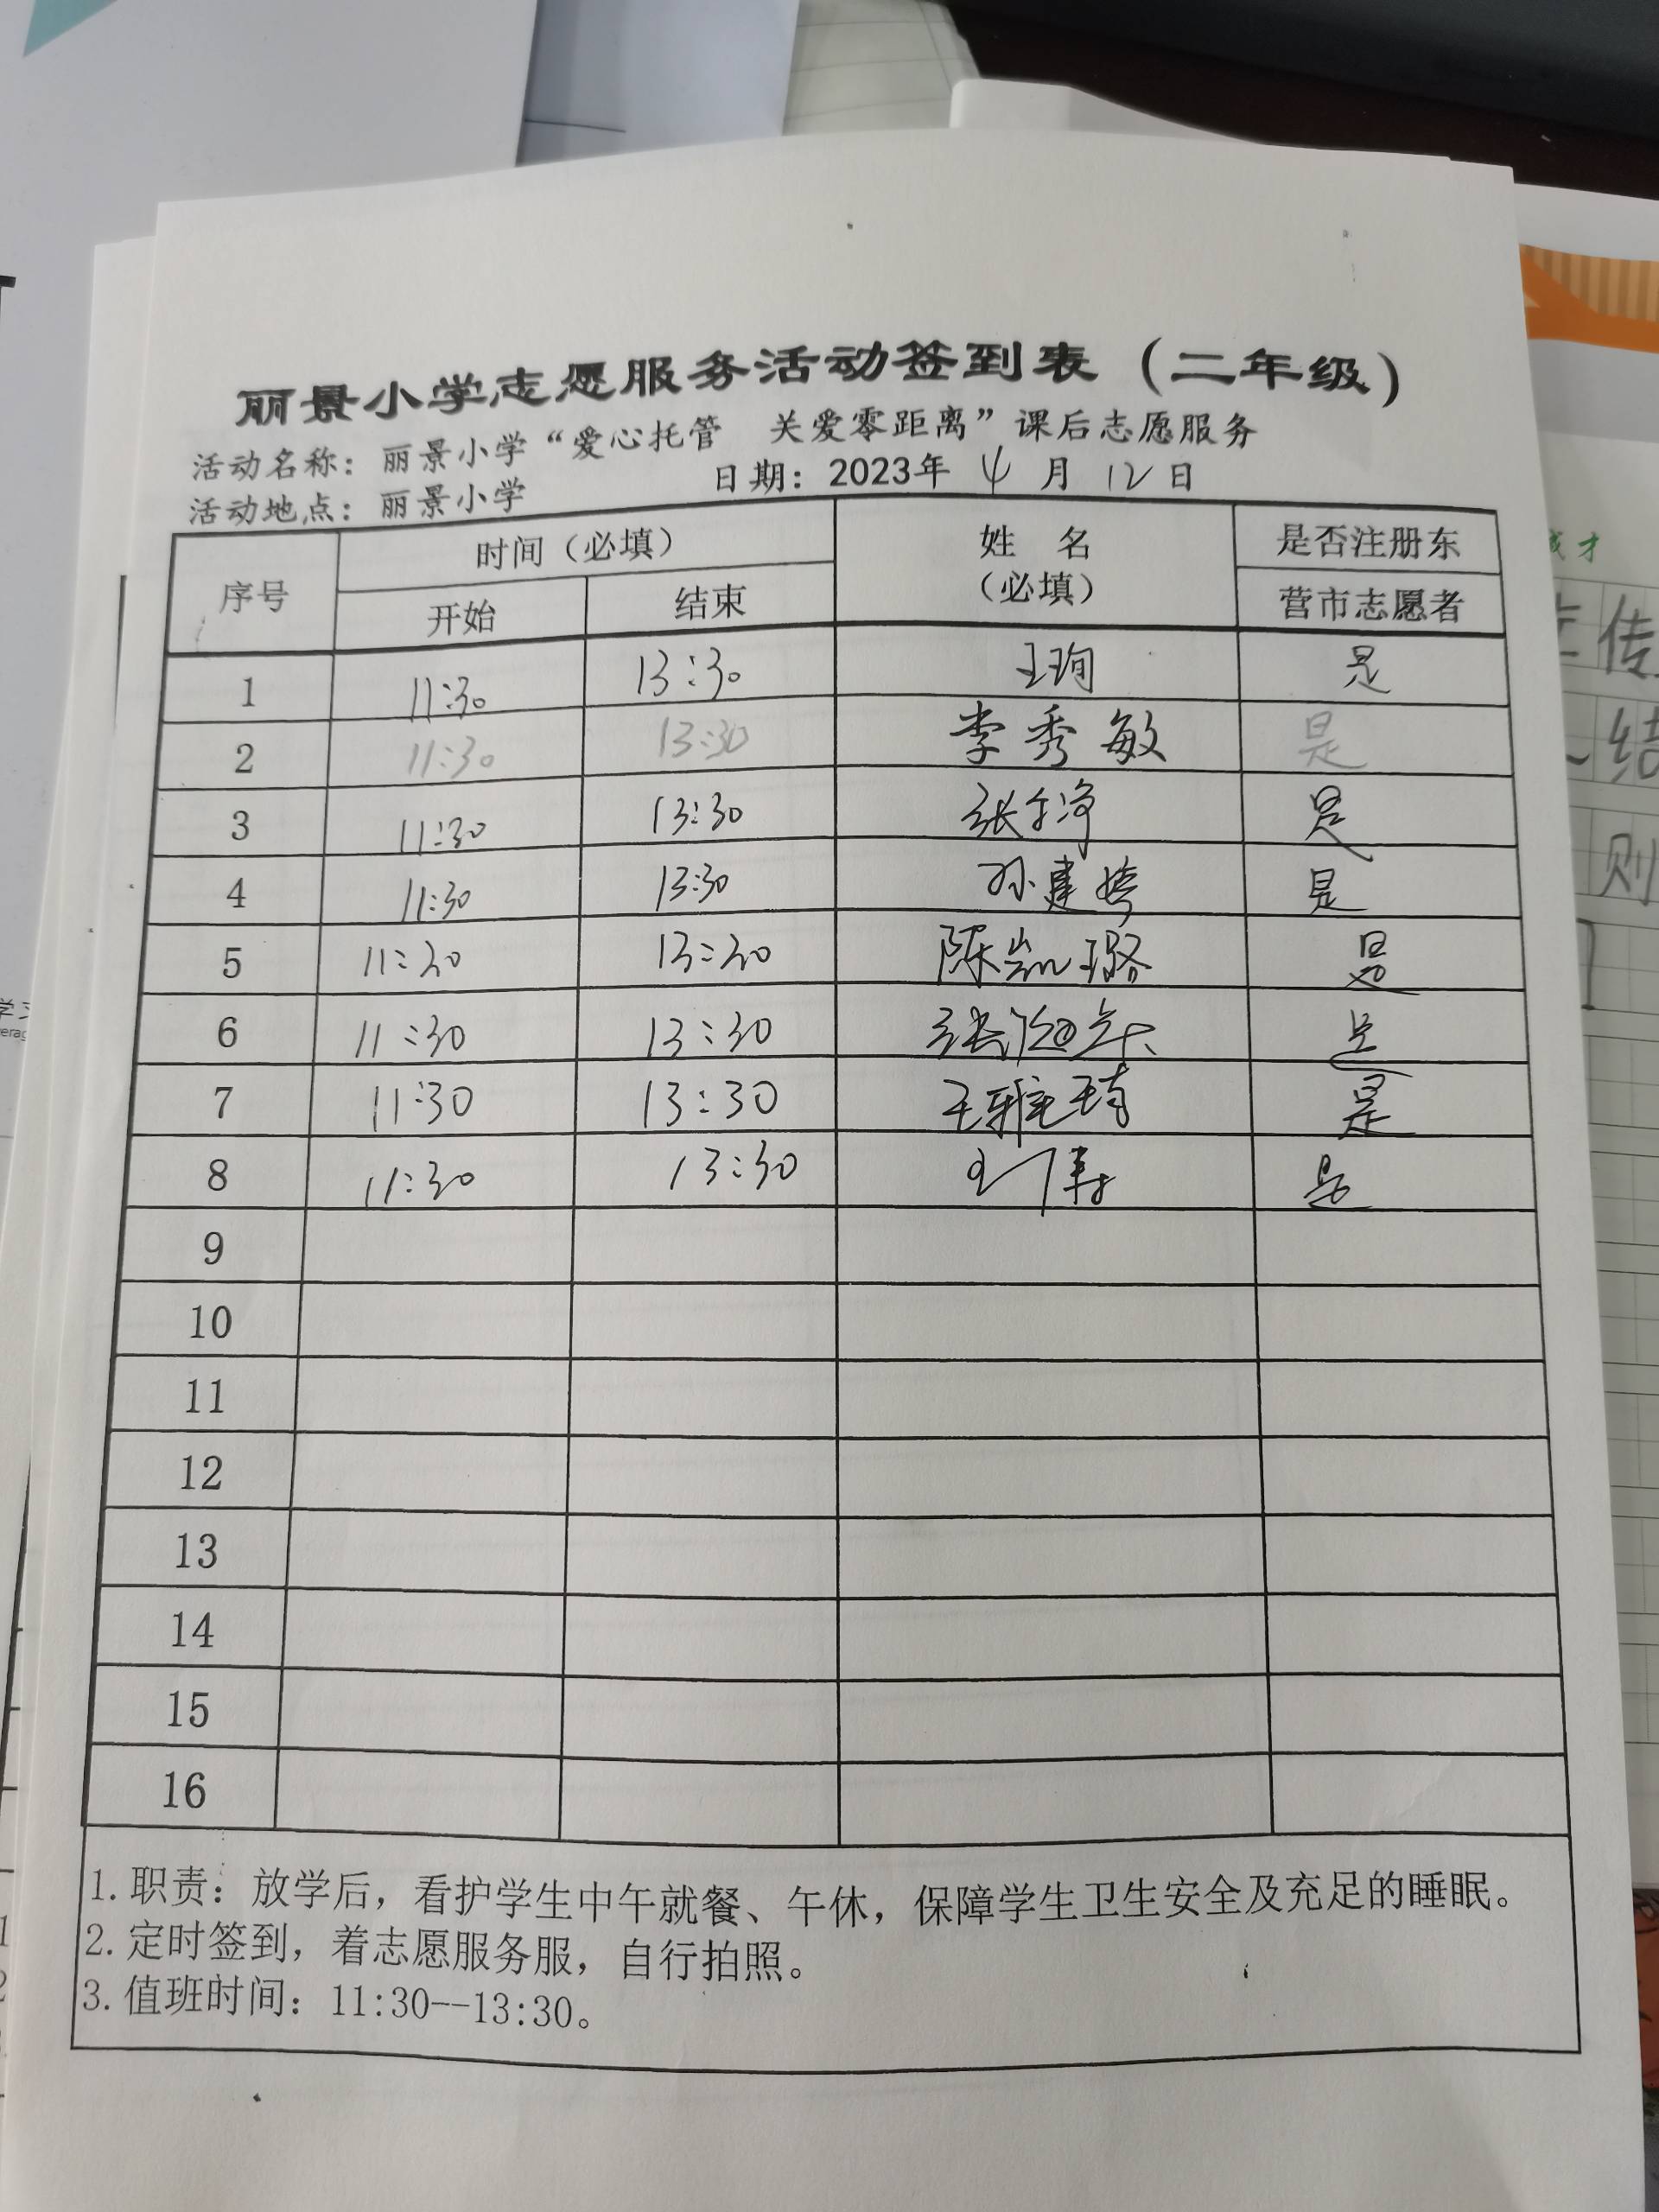 丽景小学志愿服务活动签到表（二年级）
活动名称：丽景小学“爱心托管　关爱零距离”课后志愿服务
活动地点：丽景小学　日期：2023年 4 月 12 日
序号 时间（必填） 姓　名（必填） 是否注册东营市志愿者
开始 结束
1 11:30 13:30 王珣 是
2 11:30 13:30 李秀敏 是
3 11:30 13:30 是
4 11:30 13:30 孙建婷 是
5 11:30 13:30 陈凯璐 是
6 11:30 13:30 是
7 11:30 13:30 王雅琦 是
8 11:30 13:30 是
9
10
11
12
13
14
15
16
1.职责：放学后，看护学生中午就餐、午休，保障学生卫生安全及充足的睡眠。
2.定时签到，着志愿服务服，自行拍照。
3.值班时间：11:30--13:30。